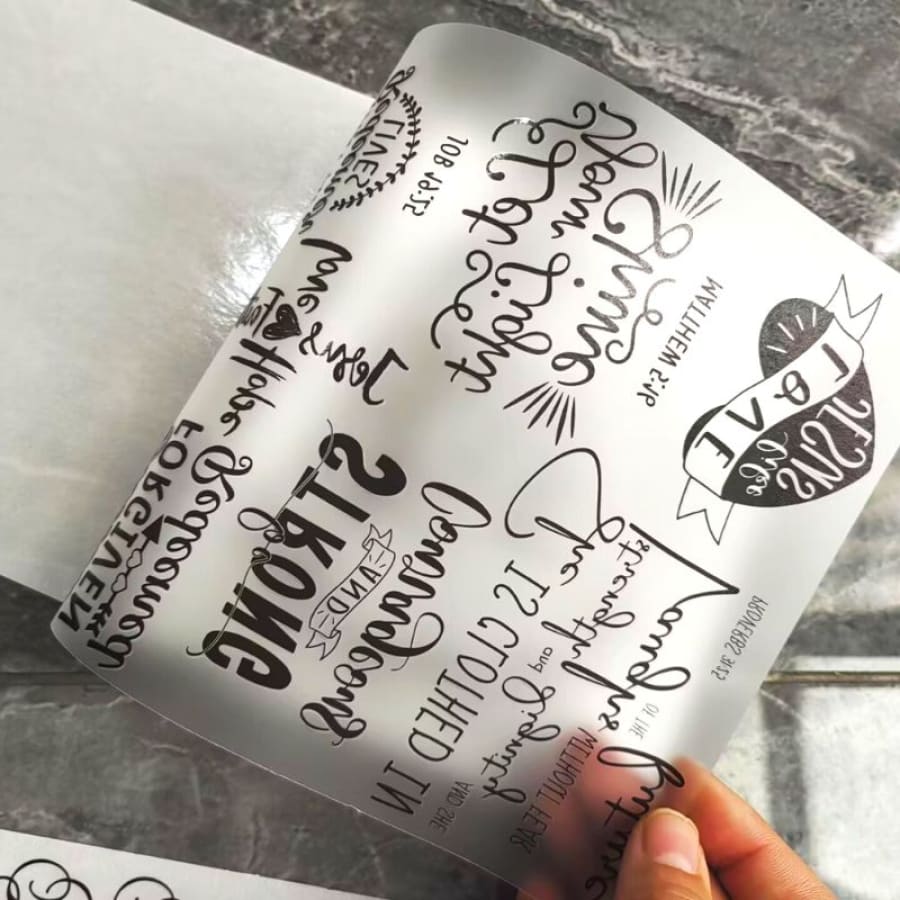 Redeemer
LIVES
JOB 19:25
Let Your
Light
Shine
MATTHEW 5:16
LOVE
like
JESUS
Love
Jesus
Hope
Redeemed
FORGIVEN
be
STRONG
AND
Courageous
She IS CLOTHED IN
strength and dignity
AND SHE
Laughs
WITHOUT FEAR
OF THE
future
PROVERBS 31:25